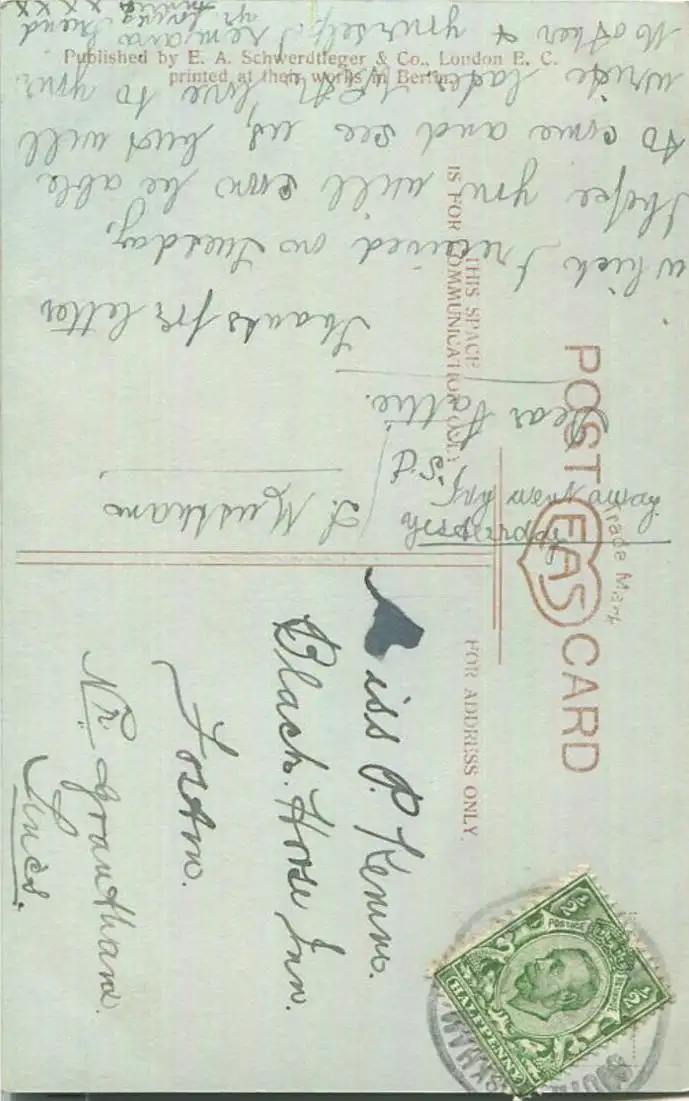 Published by E. A. Schwerdtfeger & Co., London E. C.
printed at their works in Berlin.
POST CARD
EAS
Trade Mark
THIS SPACE
IS FOR COMMUNICATION ONLY
FOR ADDRESS ONLY.
P.S
Dear Pattie.
Thanks for letter
which I received on Tuesday,
I hope you will soon be able
to come and see us, but will
write later, with love to your
Mother & yourself I remain
yr. loving friend
xxxx
Miss P. Kemm.
Black. Horse Inn.
Foston.
Nr. Grantham.
Lincs.
POSTAGE
½
½
HALFPENNY